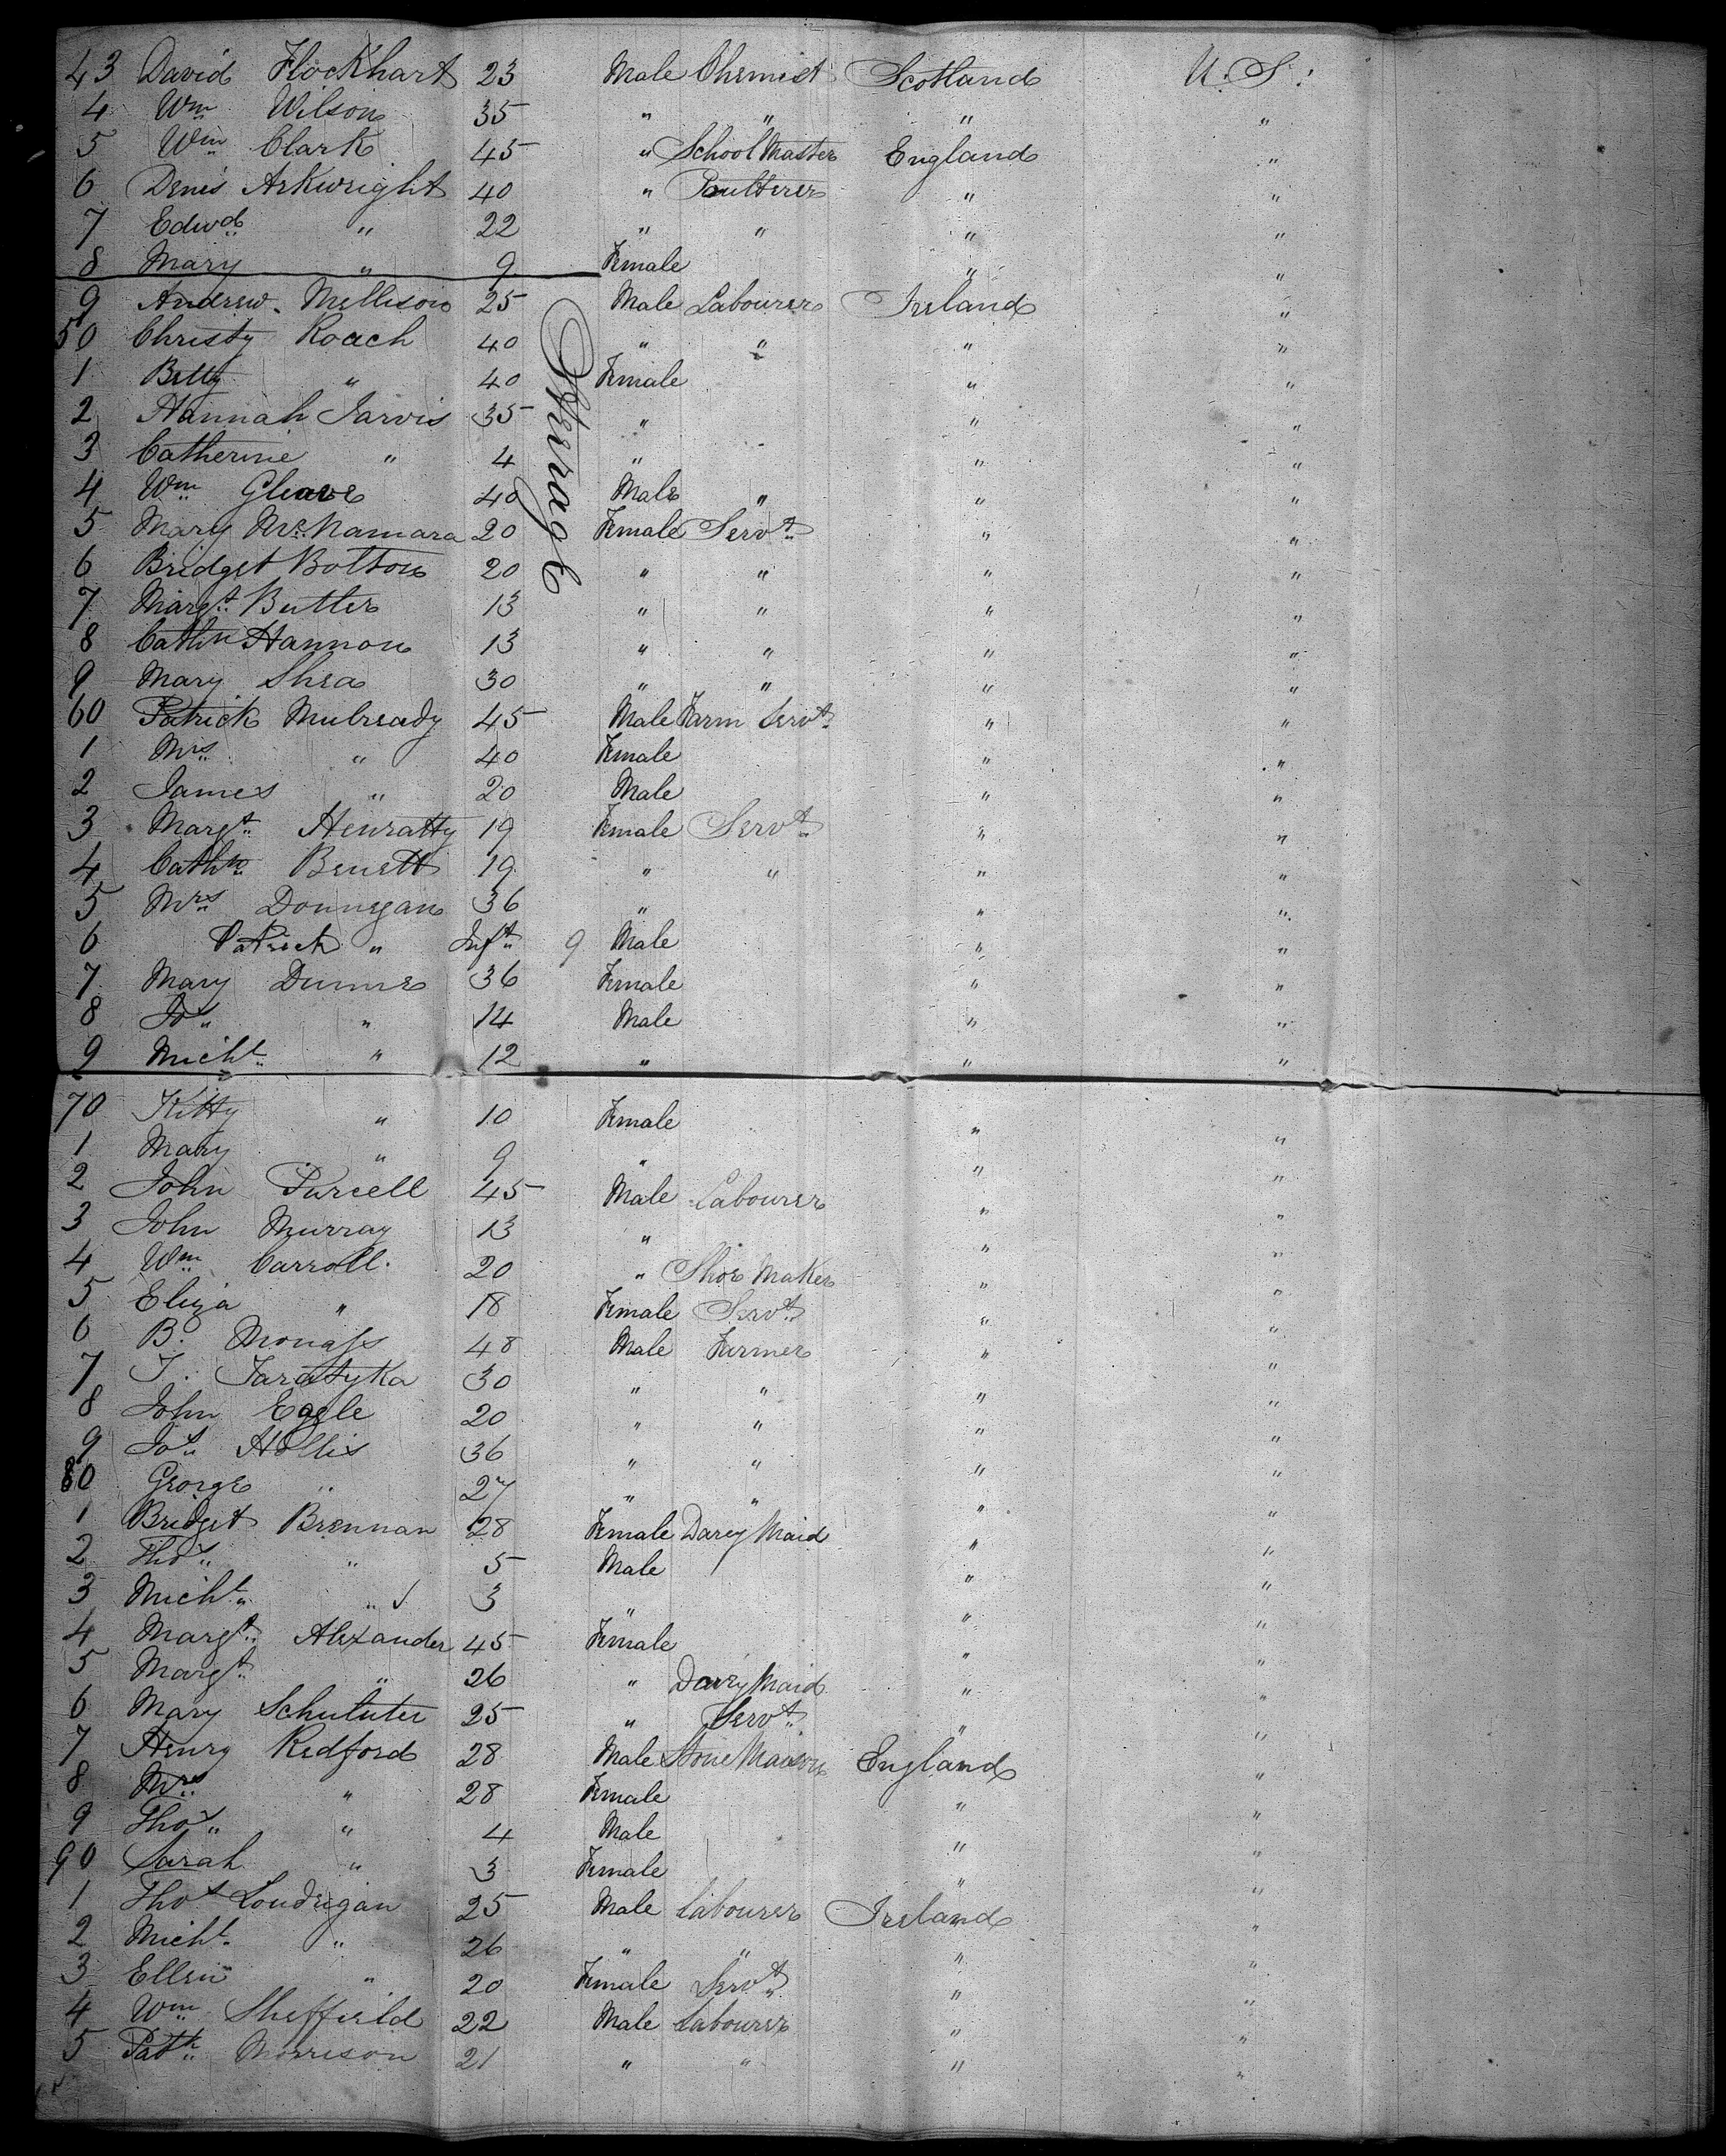 43 David Flockhart 23 Male Chemist Scotland U. S.
4 Wm Wilson 35 " " " "
5 Wm Clark 45 " School Master England "
6 Denis Arkwright 40 " Poulterer " "
7 Edwd " 22 " " " "
8 Mary " 9 Female " "
9 Andrew Mellison 25 Male Labourer Ireland "
50 Christy Roach 40 " " " "
1 Betty " 40 Female " "
2 Hannah Jarvis 35 " " "
3 Catherine " 4 " " "
4 Wm Gleave 40 Male " " "
5 Mary McNamara 20 Female Servt " "
6 Bridget Bolton 20 " " " "
7 Margt Butler 13 " " " "
8 Cathn Hannon 13 " " " "
9 Mary Shea 30 " " " "
Steerage
60 Patrick Mulready 45 Male Farm Servt " "
1 Mrs " 40 Female " "
2 James " 20 Male " "
3 Margt Henratty 19 Female Servt " "
4 Cathn Benett 19 " " " "
5 Mrs Dounegan 36 " " "
6 Patrick " Inft 9 Male " "
7 Mary Dunne 36 Female " "
8 Jos " 14 Male " "
9 Michl " 12 " " "
70 Kitty " 10 Female " "
1 Mary " 9 " " "
2 John Purcell 45 Male Labourer " "
3 John Murray 13 " " "
4 Wm Carroll 20 " Shoe Maker " "
5 Eliza " 18 Female Servt " "
6 B. Monass 48 Male Farmer " "
7 T. Taratyka 30 " " " "
8 John Eagle 20 " " " "
9 Jos Hollis 36 " " " "
80 George " 27 " " " "
1 Bridget Brennan 28 Female Darey Maid " "
2 Thos " 5 Male " "
3 Michl " 3 " " "
4 Margt Alexander 45 Female " "
5 Margt " 26 " Dairy Maid " "
6 Mary Schuluter 25 " Servt " "
7 Henry Redford 28 Male Stone Mason England "
8 Mrs " 28 Female " "
9 Thos " 4 Male " "
90 Sarah " 3 Female " "
1 Thos Loudrigan 25 Male Labourer Ireland "
2 Michl " 26 " " " "
3 Ellen " 20 Female Servt " "
4 Wm Sheffield 22 Male Labourer " "
5 Patk Morrison 21 " " " "